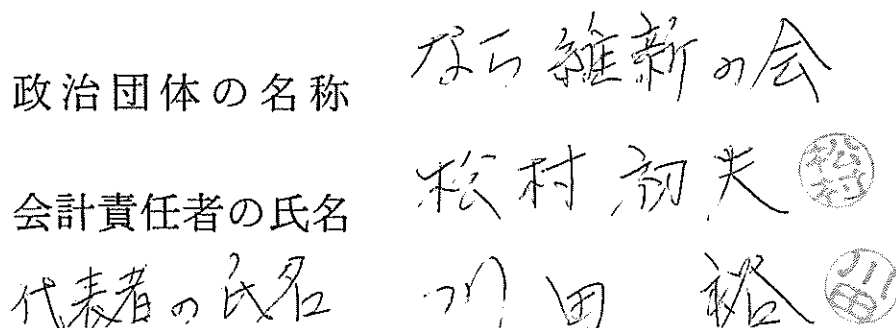 政治団体の名称 なら維新の会
会計責任者の氏名 松村初夫 松村
代表者の氏名 川田 裕 川田